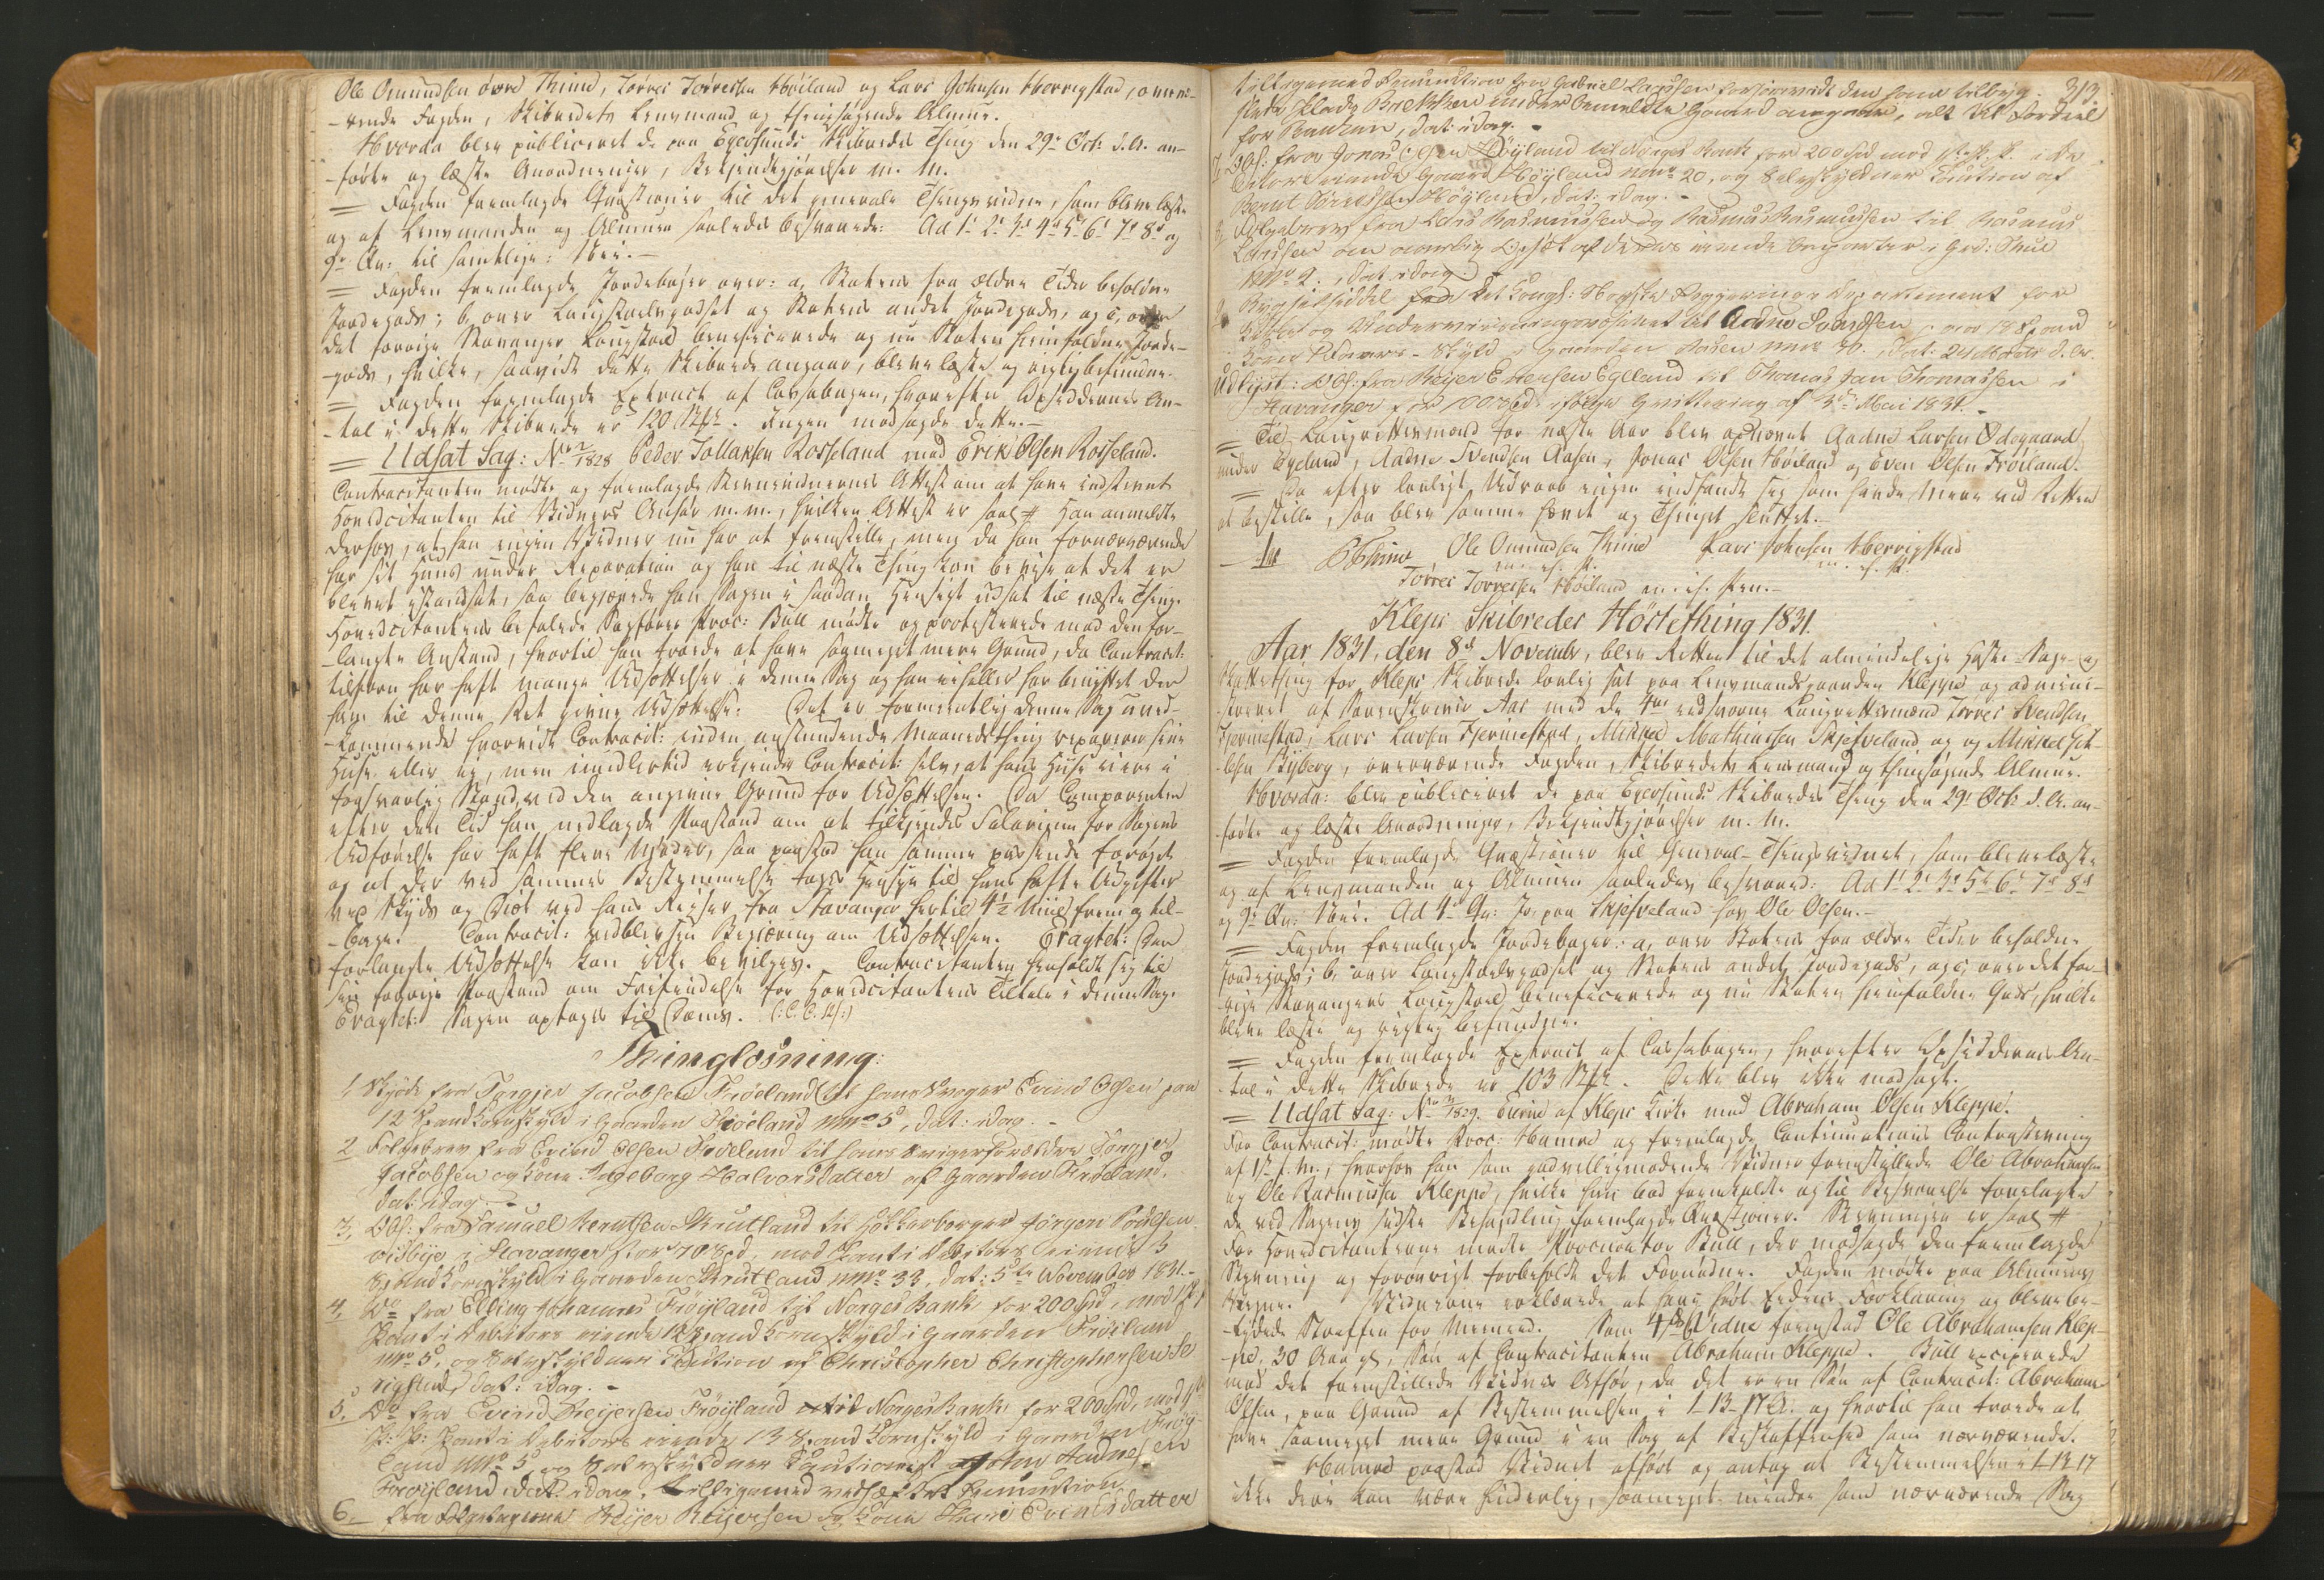 Ole Omundsen övre Thime, Törres Torresen Höiland og Lars Johnsen Herrigstad, overvæ-
-rende Fogden, Skibredets Lensmand og thingsøgende Almue.
Hvorda blev publiceret de paa Egersunds Skibredes Thing den 29de Oct: d. A. an-
-førte og læste Anordninger, Bekjendtgjørelser m. m.
= Fogden fremlagde Qvæstioner til det generale Thingsvidne, som bleve læste
og af Lensmanden og Almuen saaledes besvarede: Ad 1. 2. 3. 4. 5. 6. 7. 8. og
9. Qv: til samtlige: Nei. -
= Fogden fremlagde Jordebøger over: a, Statens fra ældre Tider beholdne
Jordegods; b, over Laugstoelsgodset og Statens andet Jordegods, og c, over
det forrige Stavanger Laugstoel beneficerede og nu Staten hjemfaldne Jorde-
-gods, hvilke, saavidt dette Skibrede angaaer, bleve læste og rigtig befundne.
= Fogden fremlagde Extract af Cassabogen, hvorefter Opsiddernes An-
-tal i dette Skibrede er 120 Stk. Ingen modsagde dette. -
= Udsat Sag: No 2/1828 Peder Tollaksen Rosseland mod Erik Olsen Rosseland.
Contracitanten mødte og fremlagde Stævnevidnernes Attest om at have indstevnt
Hovedcitanten til Vidners Anhør m. m., hvilken Attest er saal. # Han anmeldte
derhos, at han ingen Vidner nu har at fremstille, men da han fornærværende
har sit Huus under Reparation og han til næste Thing kan bevise at det er
blevet istandsat, saa begjærede han Sagen i saadan Hensigt udsat til næste Thing.
Hovedcitantens befalede Sagfører Proc: Bull mødte og protesterede mod den for-
-langte Anstand, hvortil han troede at have saameget mere Grund, da Contracit:
tilforn har haft mange Udsættelser i denne Sag og han ei heller har benyttet den
ham til denne Ret givne Udsættelse. Det er formeentlig denne Sag uved-
-kommende hvorvidt Contracit: inden anstundende Maanedsthing reparerer sine
Huse eller ei, men imidlertid erkjender Contracit: selv, at hans Huse ei ere i
forsvarlig Stand, ved den angivne Grund for Udsættelsen. Da Comparenten
efter den Tid han nedlagde Paastand om at tilkjendes Salarium for Sagens
Udførelse har haft flere Møder, saa paastod han samme passende forøget
og at der ved sammes Bestemmelse toges Hensyn til hans hafte Udgifter
ved Skyds og Diæt ved hans Reiser fra Stavanger hertil 4½ Miil frem og til-
-bage. Contracit: vedblev sin Begjæring om Udsættelsen. Eragtet: Den
forlangte Udsættelse kan ikke bevilges. Contracitanten henholdt sig til
sin forrige Paastand om Frifindelse for Hovedcitantens Tiltale i denne Sag.
Eragtet: Sagen optages til Doms.
Thinglæsning:
1 Skjöde fra Torgjer Jacobsen Fröeland til hans Svoger Evind Olsen paa
12 Spand Kornskyld i Gaarden Fröeland No 5, dat: idag. -
2 Folgebrev fra Evind Olsen Fröeland til hans Svigerforældre Torgjer
Jacobsen og Kone Ingeborg Halvorsdatter af Gaarden Fröeland,
dat: idag. -
3, Obl: fra Samuel Berntsen Skrutland til Høkkerborger Jørgen Poulsen
Disbye i Stavanger stor 70 Spd, mod Pant i Debitors eiende 3
Spand Kornskyld i Gaarden Skrutland No 33, dat: 5te November 1831. -
4, Do fra Elling Johannes Fröyland til Norges Bank for 200 Spd, mod 1st P.
Pant i Debitors eiende 12 Spand Kornskyld i Gaarden Fröiland
No 5, og Selvskyldner Caution af Christopher Christophersen Se
rigstad, dat: idag. -
5, Do fra Evind Reijersen Fröyland til Norges Bank for 200 Spd, mod 1st
P: P: Pant i Debitors eiende 13 Spand Kornskyld i Gaarden Fröy-
land No 5 og Selvskyldner Cautionist Aadnesen
Fröyland, dat: idag. Tilligemed vedhæftet Remmission
6. - fra Folgetagerne Reijer Reijersen og Kone Evindsdatter
313.
tilligemed Remmission fra Gabriel Larssen forsaavidt den ham tilbyg-
for Banken, dat: idag. -
7, Obl: fra Jonas Olsen Höyland til Norges Bank for 200 Spd mod 1st P. P. i De
bitors eiende Gaard Höyland No 20, og Selvskyldner Caution af
Bernt Höyland, dat: idag. -
8, Folgebrev fra Lars Rasmussen og Rasmus Rasmussen til Rasmus
Larssen om aarlig
No 9. dat: idag. -
9 Bygselseddel fra det Kongl: Norske Regjerings Departement for
Kirke og Underviisningsvæsenet til Aadne Svendsen, paa 18 Spand
Korn Skyld i Gaarden Aasen No 40, dat: 24 Marts d. A.
Udlyst: Obl: fra Reyer Ellersen Egeland til Thomas Jan Thomassen i
Stavanger for 100 Spd. ifölge Qvittering af 3die Mai 1831. -
= Til Laugrettesmænd for næste Aar blev opnævnt Aadne Larsen Ødegaard
under Egeland, Aadne Svendsen Aasen, Jonas Olsen Höiland og Even Olsen Fröiland.
= Da efter lovligt Udraab ingen indfandt sig som havde mere ved Retten
at bestille, saa blev samme hævet og Thinget sluttet. -
Ole Omundsen Thime Lars Johnsen Herrigstad
m. f. P. m. f. P.
Törres Torresen Höiland m. f. Pen. -
Kleps Skibredes Höstething 1831.
Aar 1831, den 8de November, blev Retten til det almindelige Høste-Sage- og
Skattething for Kleps Skibrede lovlig sat paa Lensmandsgaarden Kleppe og admini-
-streret af Sorenskriver Aar med de 4re eedsvorne Laugrettesmænd Torres Svendsen
Hjermestad, Lars Larsen Hjermestad, Mikkel Mathiassen Skjefveland, og Mikkel Jet-
-lesen Nyberg, overværende Fogden, Skibredets Lensmand og thingsøgende Almue.
Hvorda: blev publiceret de paa Egersunds Skibredes Thing den 29. Oct: d. A. an-
-førte og læste Anordninger, Bekjendtgjørelser m. m.
= Fogden fremlagde Qvæstioner til General-Thingsvidnet, som bleve læste
og af Lensmanden og Almuen saaledes besvared: Ad 1. 2. 3. 5. 6. 7. 8.
og 9. Qv: Nei. Ad 4. Qv: Jo, paa Skjefveland hos Ole Olsen. -
= Fogden fremlagde Jordebøger: a, over Statens fra ældre Tider beholdne
Jordegods; b, over Laugstoelsgodset og Statens andet Jordegods, og c, over det for-
-rige Stavangers Laugstoel beneficerede og nu Staten hjemfaldne Gods, hvilke
bleve læste og rigtig befundne.
= Fogden fremlagde Extract af Cassabogen, hvorefter Opsiddernes An-
-tal i dette Skibrede er 103 Stk. Dette blev ikke modsagt.
= Udsat Sag: No 3/1829. Eierne af Kleps Kirke mod Abraham Olsen Kleppe.
For Contracit: mødte Proc: Hamre og fremlagde Continuations Contrastevning
af 1st f. M., hvorhos han som godvilligmødende Vidner fremstillede Ole Abrahamsen
og Ole Rasmussen Kleppe, hvilke han bad fremkaldte og til Besvarelse forelagte
de ved Sagens sidste Behandling fremlagde Qvæstioner. Stævningen er saal. #
For Hovedcitanterne mødte Procurator Bull, der modsagde den fremlagde
Stevning og forøvrigt forbeholdt det Fornødne. Fogden mødte paa Almuens
Vegne. Vidnerne erklærede at have hørt Eedens Forklaring og bleve be-
-tydede Straffen for Meeneed. Som 4de Vidne fremstod Ole Abrahamsen Klep-
-pe, 30 Aar gl, Søn af Contracitanten Abraham Kleppe. Bull exciperede
mod det fremstillede Vidnes Afhør, da det er en Søn af Contracit: Abraham
Olsen, paa Grund af Bestemmelsen i 1-13-17 Art. og hvortil han troede at
have saameget mere Grund i en Sag af Beskaffenhed som nærværende.
- Hamre paastod Vidnet afhørt og antog at Bestemmelsen i 1-13-17
ikke deri kan være hinderlig, saameget mindre som nærværende Sag